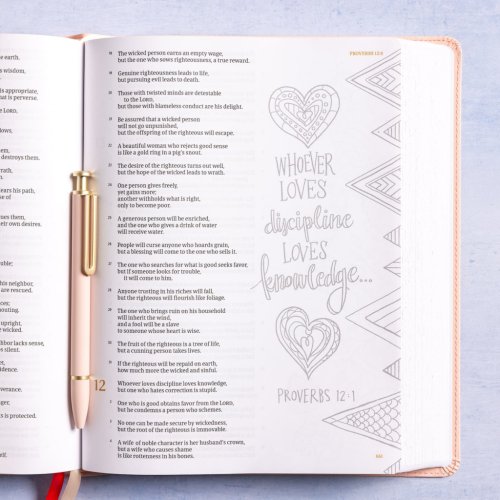 e earth.
s wisdom,
is appropriate,
hat is perverse.
he LORD,
dows.
destroys them.
rath.
ears his path,
se of
ves them,
heir own desires.
ouble;
his neighbor,
are rescued.
ices;
houting.
upright,
e wicked.
ghbor lacks sense,
ps silent.
s,
fidence.
verance.
gers is protected.
18 The wicked person earns an empty wage,
but the one who sows righteousness, a true reward.
19 Genuine righteousness leads to life,
but pursuing evil leads to death.
20 Those with twisted minds are detestable
to the LORD,
but those with blameless conduct are his delight.
21 Be assured that a wicked person
will not go unpunished,
but the offspring of the righteous will escape.
22 A beautiful woman who rejects good sense
is like a gold ring in a pig's snout.
23 The desire of the righteous turns out well,
but the hope of the wicked leads to wrath.
24 One person gives freely,
yet gains more;
another withholds what is right,
only to become poor.
25 A generous person will be enriched,
and the one who gives a drink of water
will receive water.
26 People will curse anyone who hoards grain,
but a blessing will come to the one who sells it.
27 The one who searches for what is good seeks favor,
but if someone looks for trouble,
it will come to him.
28 Anyone trusting in his riches will fall,
but the righteous will flourish like foliage.
29 The one who brings ruin on his household
will inherit the wind,
and a fool will be a slave
to someone whose heart is wise.
30 The fruit of the righteous is a tree of life,
but a cunning person takes lives.
31 If the righteous will be repaid on earth,
how much more the wicked and sinful.
12 Whoever loves discipline loves knowledge,
but one who hates correction is stupid.
2 One who is good obtains favor from the LORD,
but he condemns a person who schemes.
3 No one can be made secure by wickedness,
but the root of the righteous is immovable.
4 A wife of noble character is her husband's crown,
but a wife who causes shame
is like rottenness in his bones.
PROVERBS 12:4
WHOEVER
LOVES
discipline
LOVES
knowledge...
PROVERBS 12:1